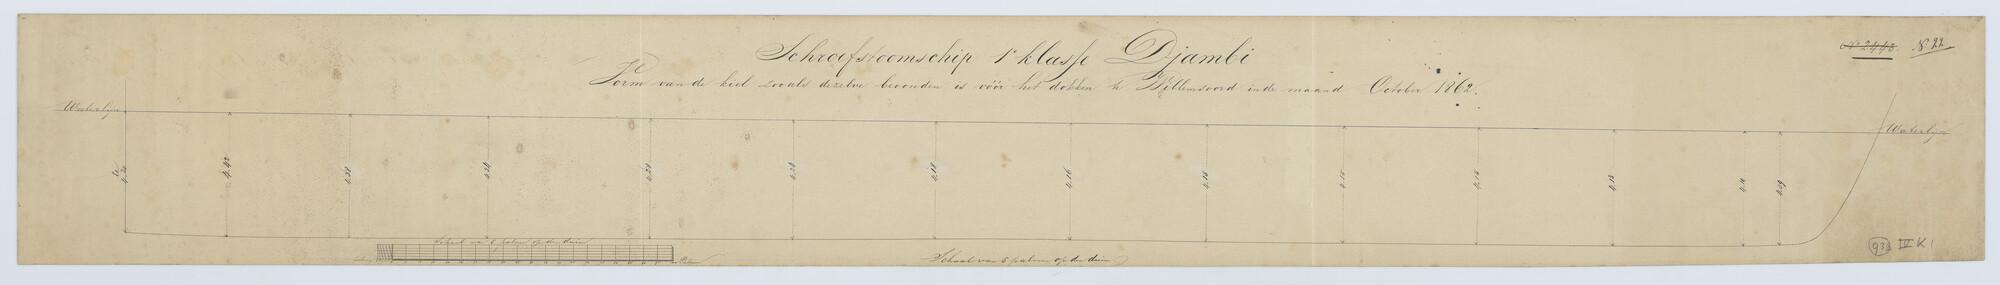 Schroefstoomschip 1e klasse Djambi
Vorm van de kiel zooals dezelve bevonden is vóór het dokken te Willemsoord in de maand October 1862.
N° 2443
N. 22
Waterlijn
Waterlijn
4.42
4.28
4.24
4.18
4.16
4.15
4.15
4.15
4.13
4.11
4.09
Schaal van 5 palm op den duim
Schaal van 5 palmen op den duim
938 IV K 1